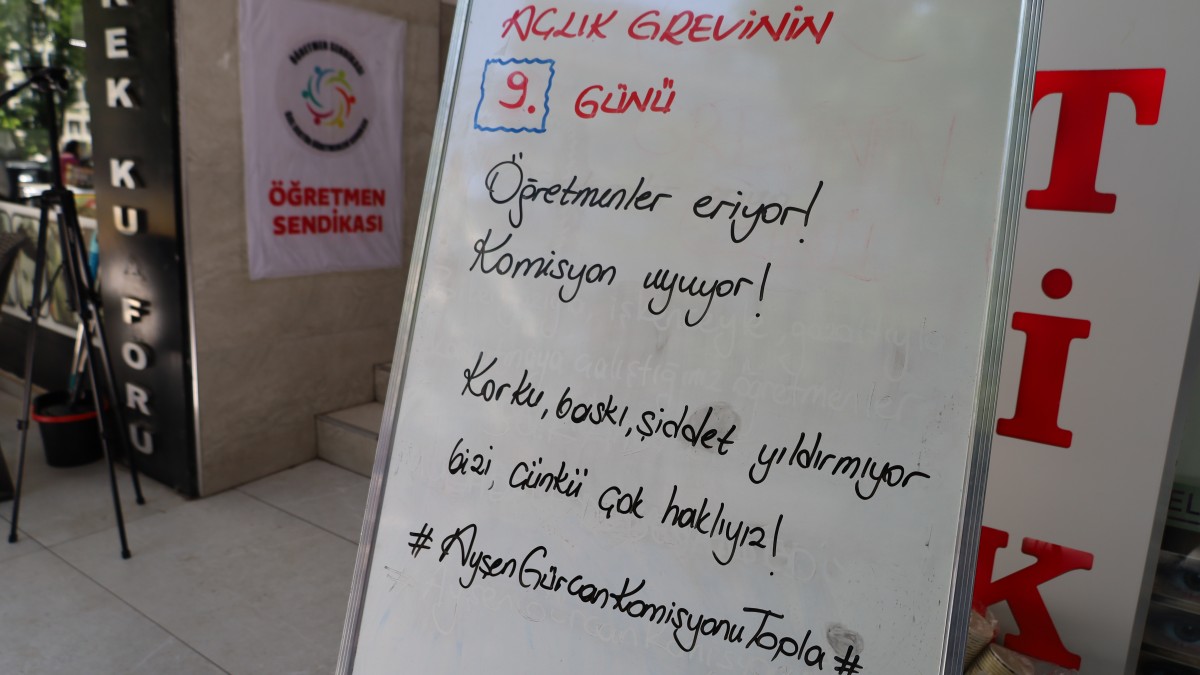 AÇLIK GREVİNİN
9. GÜNÜ
Öğretmenler eriyor!
Komisyon uyuyor!
Korku, baskı, şiddet yıldırmıyor
bizi, çünkü çok haklıyız!
#AyşenGürcanKomisyonuTopla#
ÖĞRETMEN SENDİKASI
ÖĞRETMEN
SENDİKASI
EK KUAFÖRÜ
TİK
EL